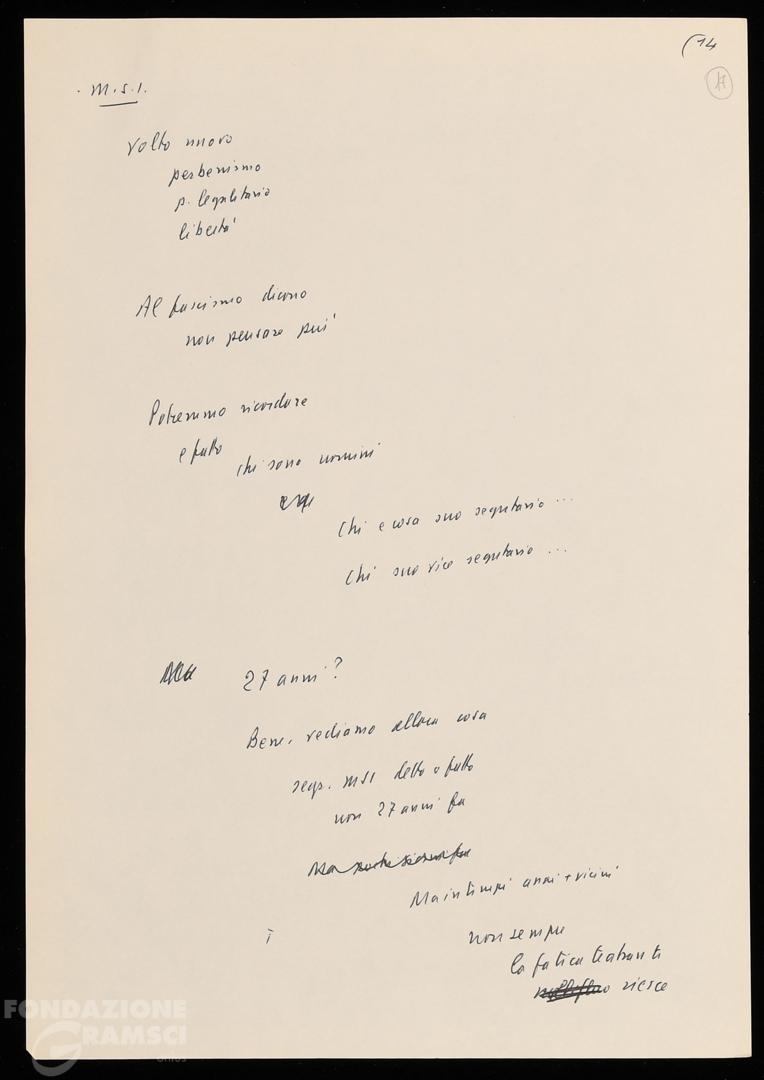 (14
17
. M.S.I.
volto nuovo
perbenismo
p. legalitario
libertà
Al fascismo dicono
non pensare più
Potremmo ricordare
e fatto
chi sono uomini
Chi e cosa suo segretario ...
Chi suo vice segretario ...
27 anni?
Bene, vediamo allora cosa
segr. MSI detto o fatto
non 27 anni fa
Ma in tempi anni + vicini
non sempre
la fatica teatrante
riesce
FONDAZIONE
GRAMSCI
onlus